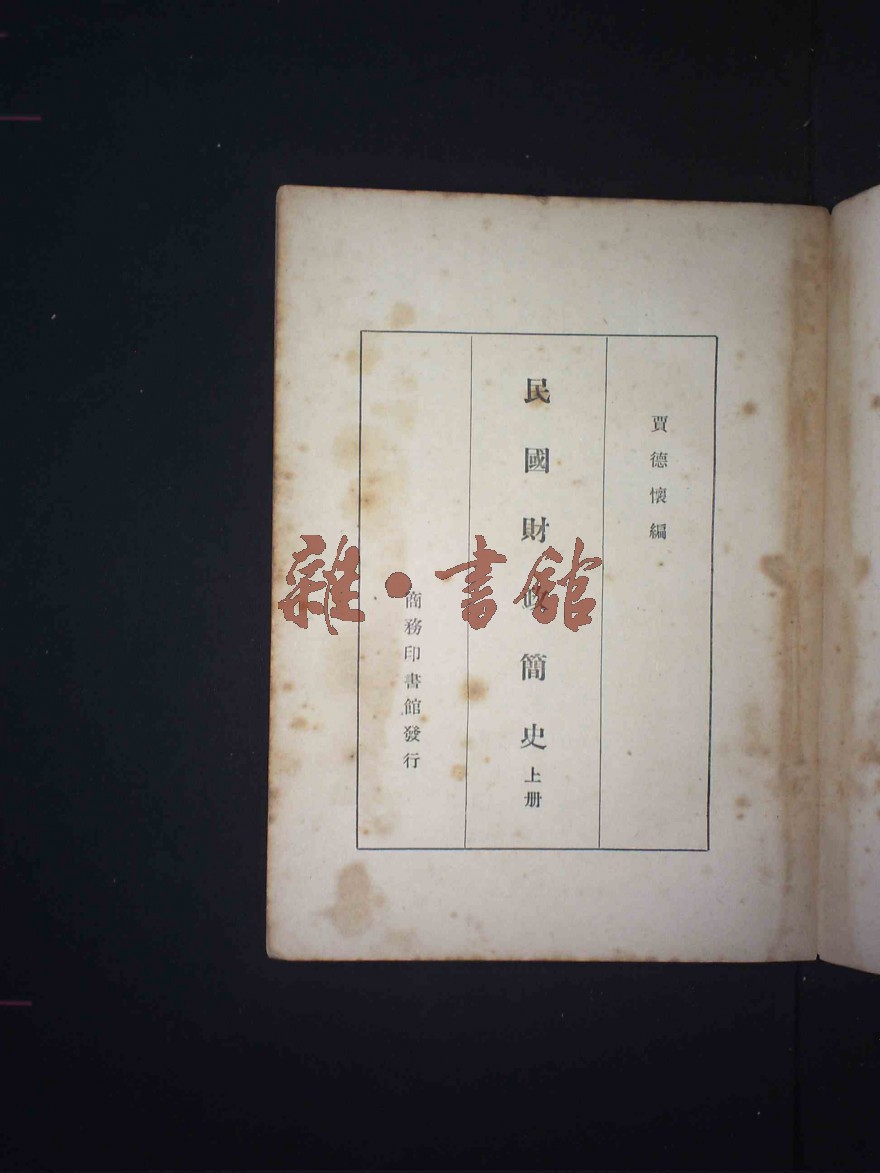 賈德懷編
民國財政簡史上册
商務印書館發行
雜·書館